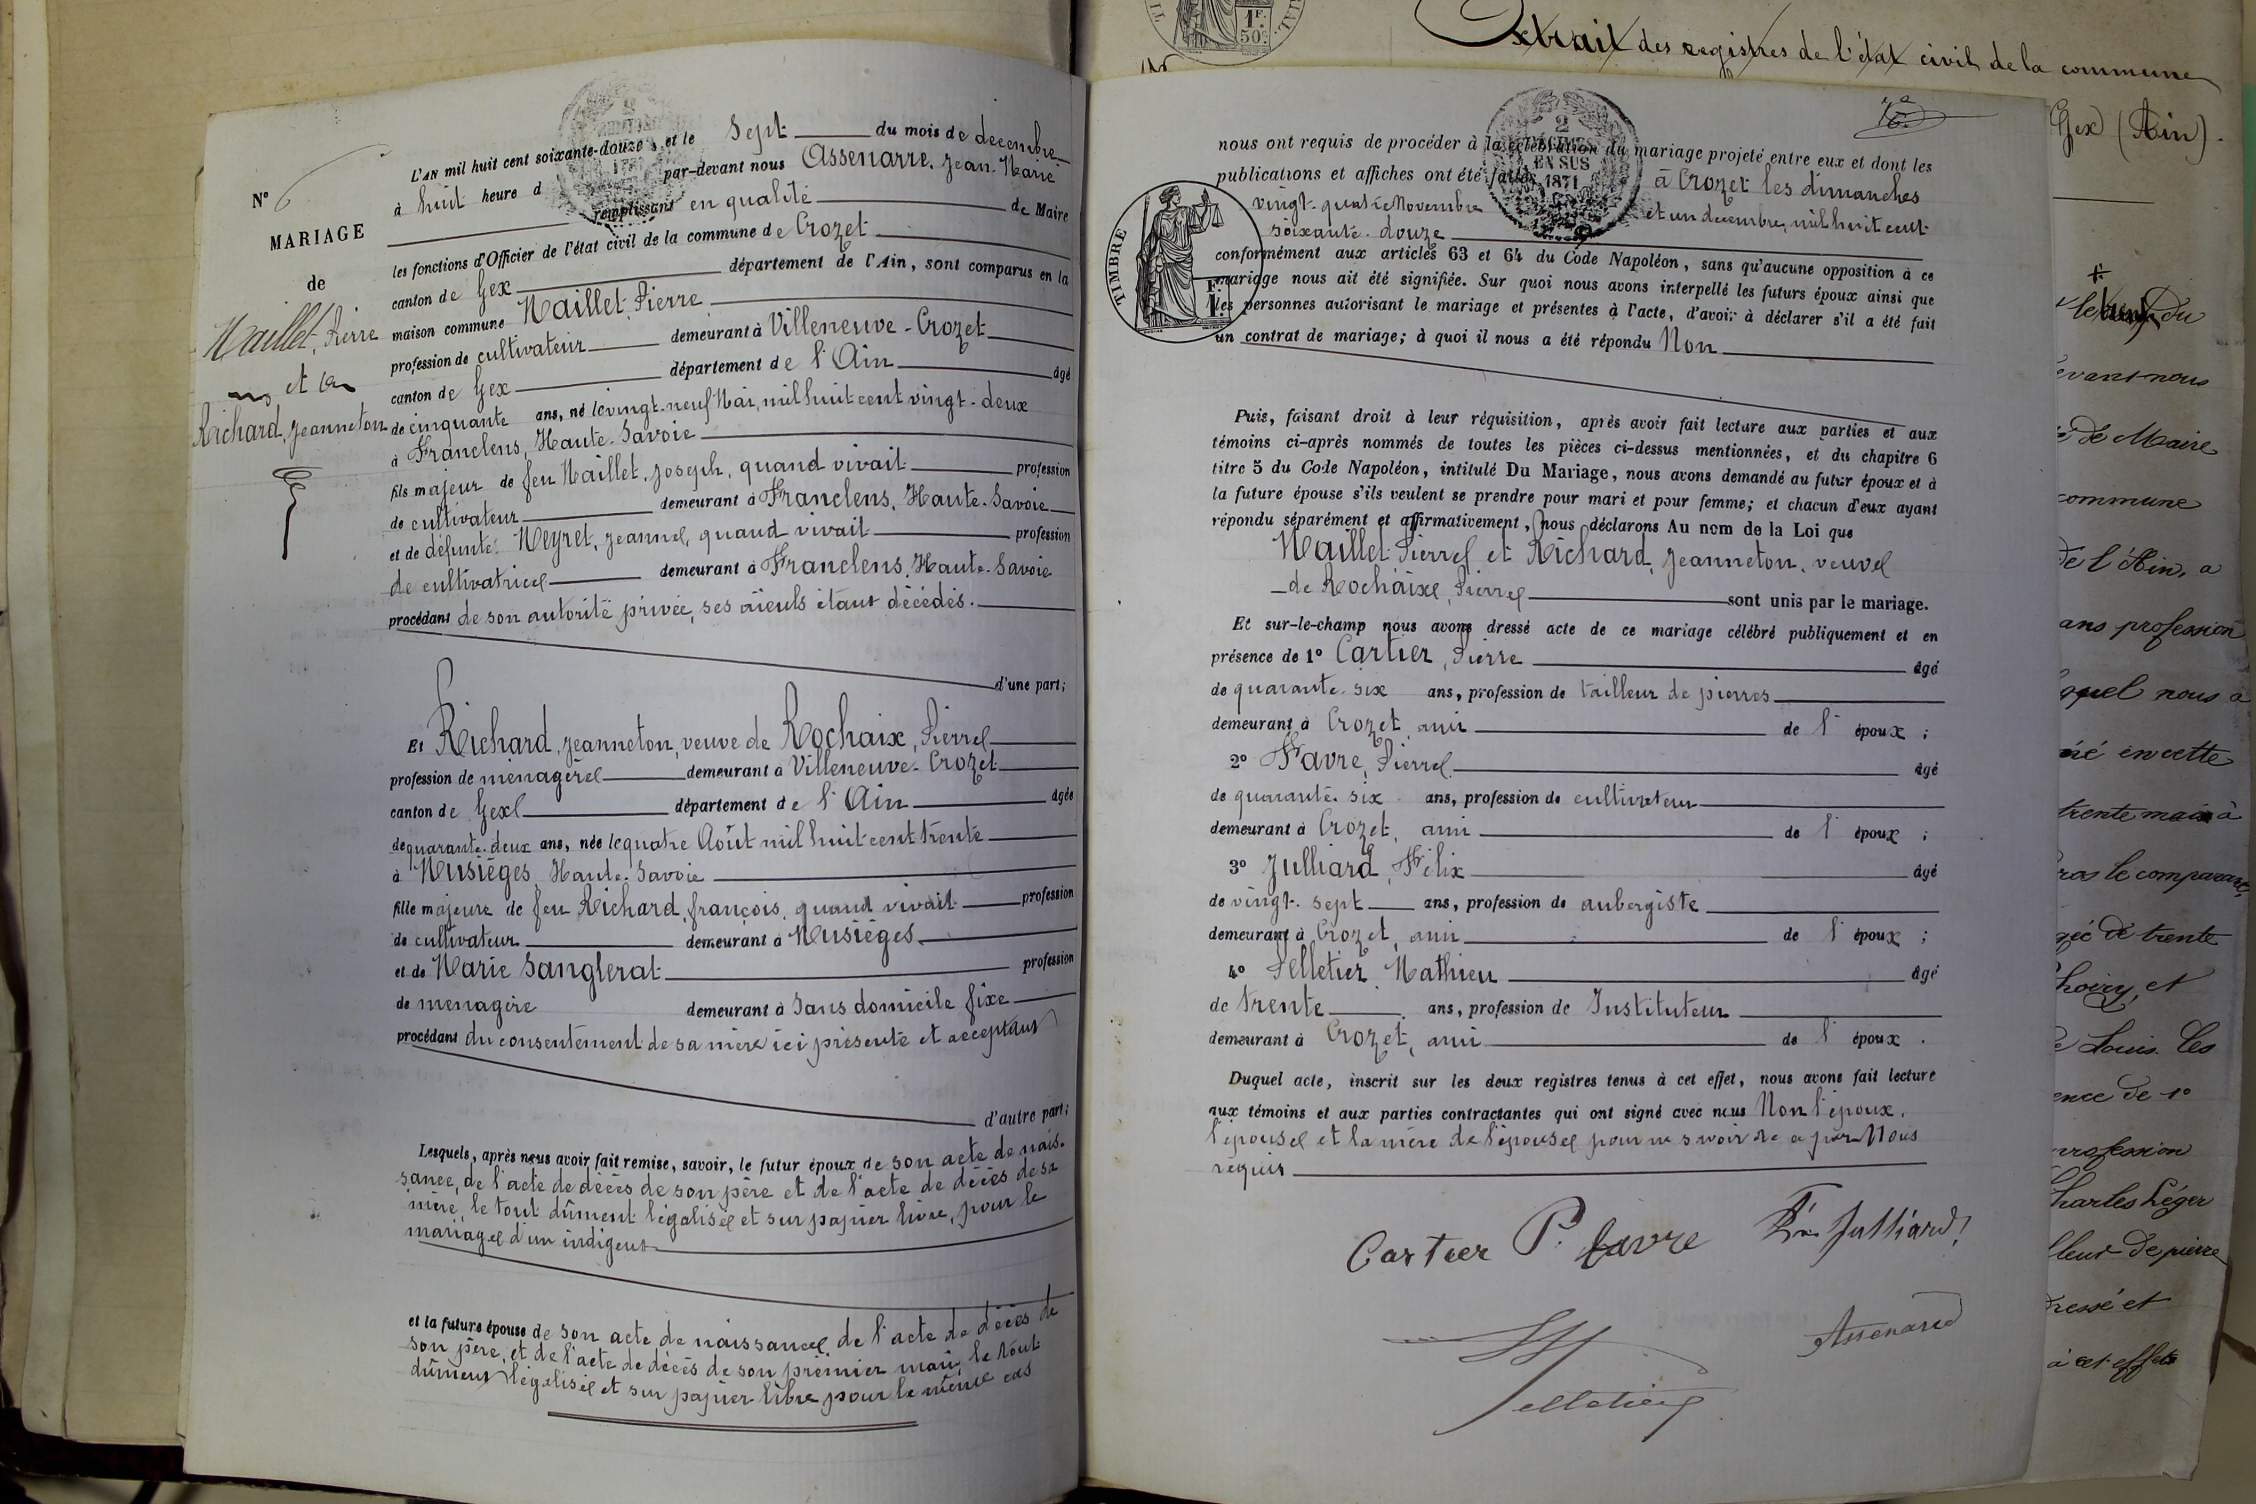 N° 6
MARIAGE
de
Maillet, Pierre
et la
Richard, Jeanneton
L'AN mil huit cent soixante-douze, et le sept du mois de décembre
à huit heure d par-devant nous Assenarre, Jean-Marie
remplissant en qualité de Maire
les fonctions d'Officier de l'état civil de la commune de Crozet
canton de Gex département de l'Ain, sont comparus en la
maison commune Maillet, Pierre
profession de cultivateur demeurant à Villeneuve-Crozet
canton de Gex département de l'Ain âgé
de cinquante ans, né le vingt-neuf Mai, mil huit cent vingt-deux
à Franclens, Haute-Savoie
fils majeur de feu Maillet, Joseph, quand vivait profession
de cultivateur demeurant à Franclens, Haute-Savoie
et de défunte Meyret, Jeanne, quand vivait profession
de cultivatrice demeurant à Franclens, Haute-Savoie
procédant de son autorité privée, ses aïeuls étant décédés.
d'une part;
Et Richard, Jeanneton, veuve de Rochaix, Pierre
profession de ménagère demeurant à Villeneuve-Crozet
canton de Gex département de l'Ain âgée
de quarante-deux ans, née le quatre Août mil huit cent trente
à Musièges, Haute-Savoie
fille majeure de feu Richard, françois, quand vivait profession
de cultivateur demeurant à Musièges
et de Marie Sanglerat profession
de ménagère demeurant à Sans domicile fixe
procédant du consentement de sa mère ici présente et acceptant
d'autre part;
Lesquels, après nous avoir fait remise, savoir, le futur époux de son acte de nais-
sance, de l'acte de décès de son père et de l'acte de décès de sa
mère, le tout dûment légalisé et sur papier livre, pour le
mariage d'un indigent
et la future épouse de son acte de naissance, de l'acte de décès de
son père, et de l'acte de décès de son prémier mari, le tout
dûment légalisé et sur papier libre pour le même cas
1F.
50c.
Extrait des registres de l'état civil de la commune
Gex (Ain).
2
DÉCIMES
EN SUS
1871
TIMBRE
nous ont requis de procéder à la célébration du mariage projeté entre eux et dont les
publications et affiches ont été faites à Crozet les dimanches
vingt-quatre Novembre et un décembre, mil huit cent
soixante-douze
conformément aux articles 63 et 64 du Code Napoléon, sans qu'aucune opposition à ce
mariage nous ait été signifiée. Sur quoi nous avons interpellé les futurs époux ainsi que
les personnes autorisant le mariage et présentes à l'acte, d'avoir à déclarer s'il a été fait
un contrat de mariage; à quoi il nous a été répondu Non
Puis, faisant droit à leur réquisition, après avoir fait lecture aux parties et aux
témoins ci-après nommés de toutes les pièces ci-dessus mentionnées, et du chapitre 6
titre 5 du Code Napoléon, intitulé Du Mariage, nous avons demandé au futur époux et à
la future épouse s'ils veulent se prendre pour mari et pour femme; et chacun d'eux ayant
répondu séparément et affirmativement, nous déclarons Au nom de la Loi que
Maillet, Pierre, et Richard, Jeanneton, veuve
de Rochaix, Pierre sont unis par le mariage.
Et sur-le-champ nous avons dressé acte de ce mariage célébré publiquement et en
présence de 1° Cartier, Pierre âgé
de quarante-six ans, profession de tailleur de pierres
demeurant à Crozet, ami de l'époux;
2° Favre, Pierre âgé
de quarante-six ans, profession de cultivateur
demeurant à Crozet, ami de l'époux;
3° Julliard, Félix âgé
de vingt-sept ans, profession de aubergiste
demeurant à Crozet, ami de l'époux;
4° Pelletier, Mathieu âgé
de trente ans, profession de Instituteur
demeurant à Crozet, ami de l'époux.
Duquel acte, inscrit sur les deux registres tenus à cet effet, nous avons fait lecture
aux témoins et aux parties contractantes qui ont signé avec nous Non l'époux,
l'épouse et la mère de l'épouse pour ne savoir de ce par Nous
requis
Cartier P. favre Julliard
Assenarre
Pelletier
le du
devant nous
de Maire
commune
de l'Ain, a
sans profession
lequel nous a
né en cette
trente mai à
le comparant
âgée de trente
Choiry, et
Louis. Les
présence de 1°
profession
Charles Léger
tailleur de pierre
dressé et
à cet effet